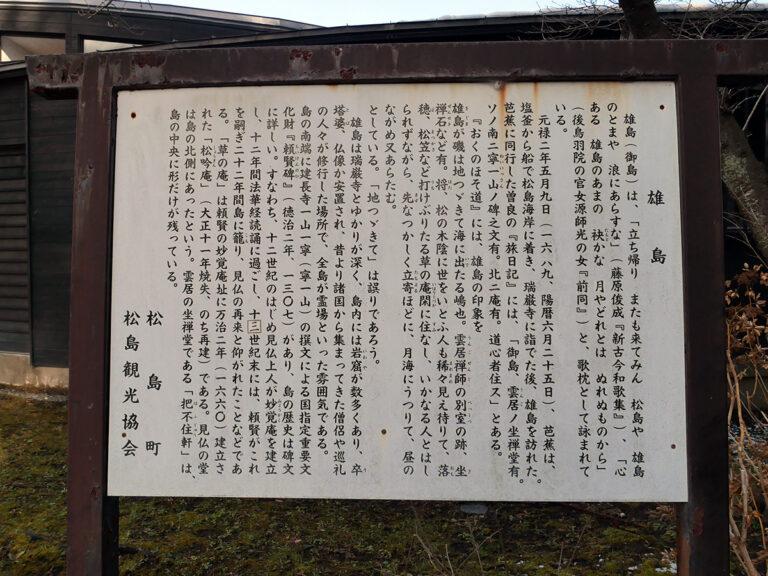 雄島
雄島（御島）は、「立ち帰り　またも来てみん　松島や　雄島
のとまや　浪にあらすな」（藤原俊成『新古今和歌集』）、「心
ある　雄島のあまの　袂かな　月やどれとは　ぬれぬものから」
（後鳥羽院の官女源師光の女『前同』）と、歌枕として詠まれて
いる。
元禄二年五月九日（一六八九、陽暦六月二十五日）、芭蕉は、
塩釜から船で松島海岸に着き、瑞巌寺に詣でた後、雄島を訪れた。
芭蕉に同行した曽良の『旅日記』には、「御島、雲居ノ坐禅堂有。
ソノ南ニ寧一山ノ碑之文有。北ニ庵有。道心者住ス」とある。
『おくのほそ道』には、雄島の印象を
雄島が磯は地つゞきて海に出たる嶋也。雲居禅師の別室の跡、坐
禅石など有。将、松の木陰に世をいとふ人も稀々見え待りて、落
穂、松笠など打けぶりたる草の庵閑に住なし、いかなる人とはし
られずながら、先なつかしく立寄ほどに、月海にうつりて、昼の
ながめ又あらたむ。
としている。「地つゞきて」は誤りであろう。
雄島は瑞巌寺とゆかりが深く、島内には岩窟が数多くあり、卒
塔婆、仏像が安置され、昔より諸国から集まってきた僧侶や巡礼
の人々が修行した場所で、全島が霊場といった雰囲気である。
島の南端に建長寺一山一寧（寧一山）の撰文による国指定重要文
化財『頼賢碑』（徳治二年、一三〇七）があり、島の歴史は碑文
に詳しい。すなわち、十二世紀のはじめ見仏上人が妙覚庵を建立
し、十二年間法華経読誦に過ごし、十三世紀末には、頼賢がこれ
を嗣ぎ二十二年間島に籠り、見仏の再来と仰がれたことなどであ
る。「草の庵」は頼賢の妙覚庵址に万治二年（一六六〇）建立さ
れた「松吟庵」（大正十一年焼失、のち再建）である。見仏の堂
は島の北側にあったという。雲居の坐禅堂である「把不住軒」は、
島の中央に形だけが残っている。
松島町
松島観光協会